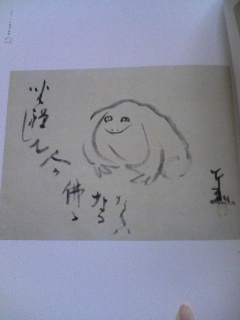 坐禅
して人か
佛ニ
なる
ならハ